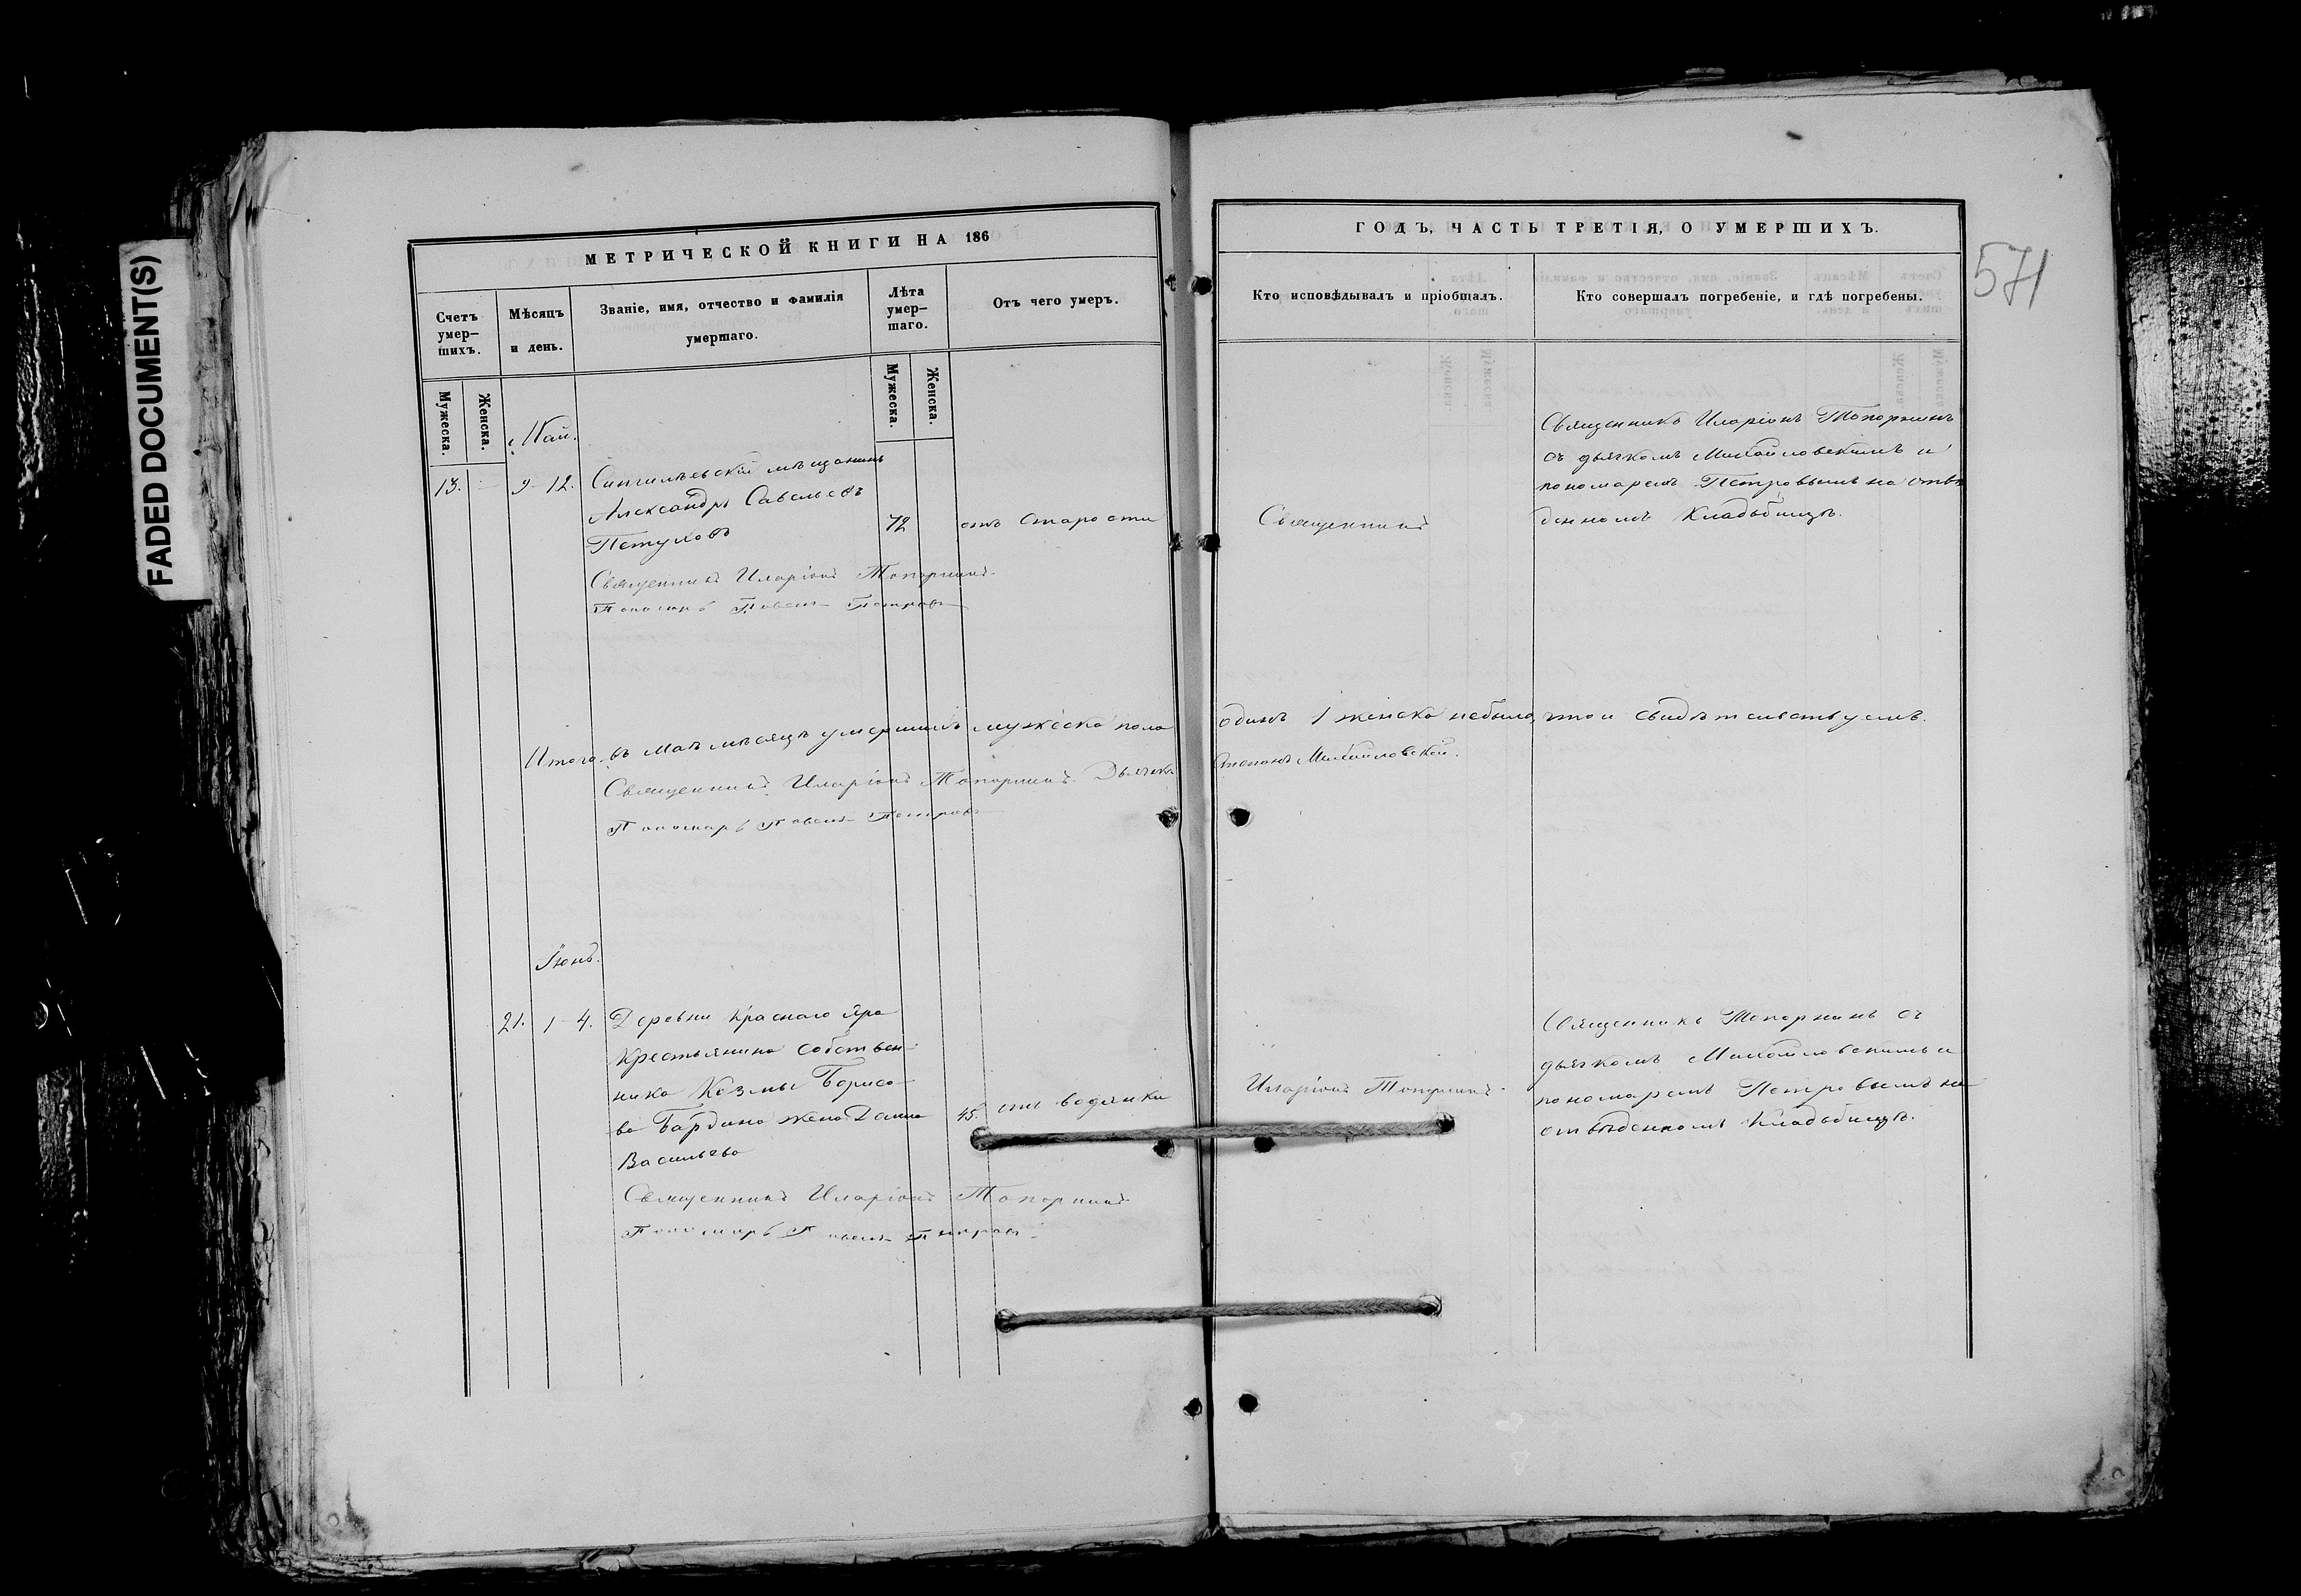 FADED DOCUMENT(S)
МЕТРИЧЕСКОЙ КНИГИ НА 186
Счетъ умер-
шихъ.
Мѣсяцъ
и день.
Званіе, имя, отчество и фамилія
умершаго.
Лѣта
умер-
шаго.
Отъ чего умеръ.
Мужеска.
Женска.
Мужеска.
Женска.
Май.
13. – 9–12. Сингилѣевскій мѣщанинъ
Александръ Савельевъ
Петуховъ
72
отъ старости
Священникъ Иларіонъ Топорнинъ.
Пономарь Павелъ Петровъ
Итого въ маѣ мѣсяцѣ умершихъ мужеска пола
Священникъ Иларіонъ Топорнинъ. Дьячекъ
Пономарь Павелъ Петровъ
Іюнь.
21. 1–4. Деревни Краснаго Яра
крестьянина собствен-
ника Козмы Борисо-
ва Бардина жена Дамна
Васильева
45.
отъ водянки
Священникъ Иларіонъ Топорнинъ
Пономарь Павелъ Петровъ
ГОДЪ, ЧАСТЬ ТРЕТІЯ, О УМЕРШИХЪ.
571
Кто исповѣдывалъ и пріобщалъ.
Кто совершалъ погребеніе, и гдѣ погребены.
Священникъ
Священникъ Иларіонъ Топорнинъ
съ дьячкомъ Михайловскимъ и
пономаремъ Петровымъ на отве
денномъ кладбищѣ.
одинъ 1 женска небыло, что и свидѣтельствуемъ.
Степанъ Михайловской.
Иларіонъ Топорнинъ.
Священникъ Топорнинъ съ
дьячкомъ Михайловскимъ и
пономаремъ Петровымъ на
отвѣденномъ кладбищѣ.